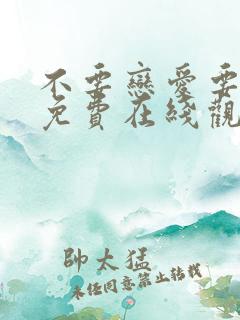 不要戀愛要
免費在綫觀
帥太猛
未經同意禁止轉載